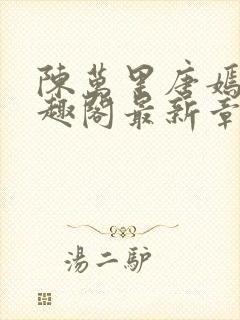 陳萬里唐嫣
趣閣最新章
湯二驴